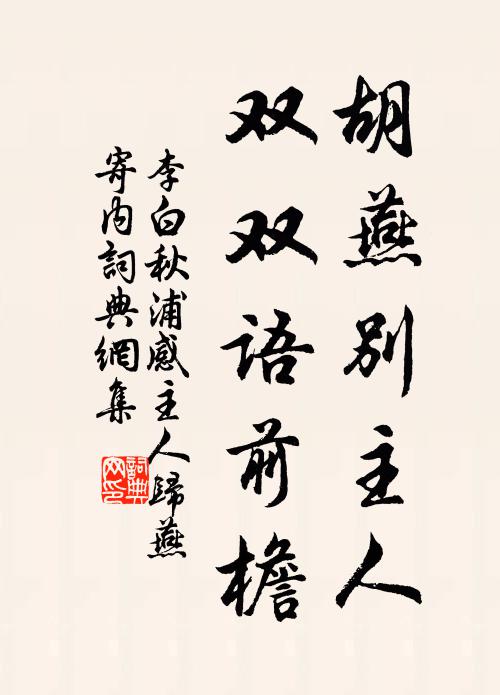 胡燕别主人
双双语前檐
李白秋浦感主人歸燕
寄内詞典網集
詞典
网印